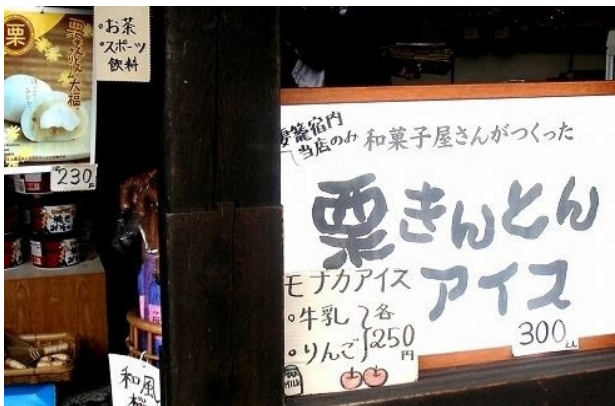 栗
栗きんとん
クリーム大福
230円
・お茶
・スポーツ
飲料
妻籠宿内
当店のみ
和菓子屋さんがつくった
栗きんとん
アイス
300えん
モナカアイス
・牛乳
・りんご
各
250円
MILK
和風